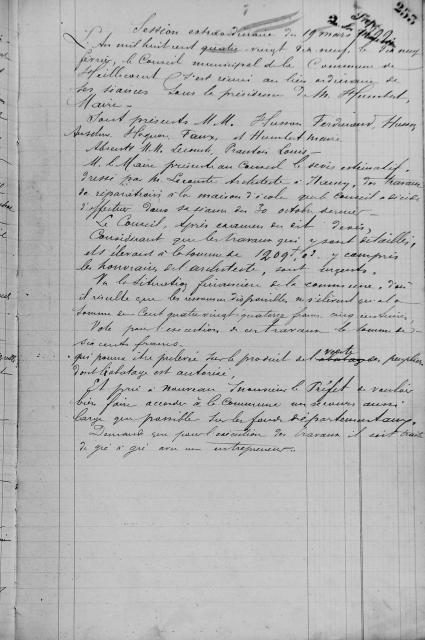 253
Session extraordinaire du 19 mars
L'An mil huit cent quatre vingt dix neuf, le dix neuf
février, le Conseil municipal de la Commune de
Heillecourt s'est réuni au lieu ordinaire de
ses séances sous la présidence de M. Humbert,
Maire.
Sont présents M.M. Husson Ferdinand, Husson
Anselme, Hoquon, Faux, et Humbert maire
Absents M.M. Lecomte, Louis
M. le Maire présente au Conseil le devis estimatif
dressé par M. Lecomte Architecte à Nancy, des travaux
de réparations à la maison d'école que le Conseil a décidé
d'effectuer dans sa séance du 30 octobre dernier.
Le Conseil, après examen du dit devis,
Considérant que les travaux qui y sont détaillés,
et s'élevant à la somme de 1209f, y compris
les honoraires de l'architecte, sont urgents.
Vu la situation financière de la commune, d'où
il résulte que les ressources disponibles ne s'élèvent qu'à la
somme de Cent quatre vingt quatorze francs cinq centimes,
Vote pour l'exécution de ces travaux la somme de
six cents francs.
qui pourra être prélevée sur le produit de la vente des peupliers
dont l'abatage est autorisée.
Et prie à nouveau Monsieur le Préfet de vouloir
bien faire accorder à la Commune un secours aussi
large que possible sur les fonds départementaux.
Demande que pour l'exécution des travaux il soit traité
de gré à gré avec un entrepreneur.